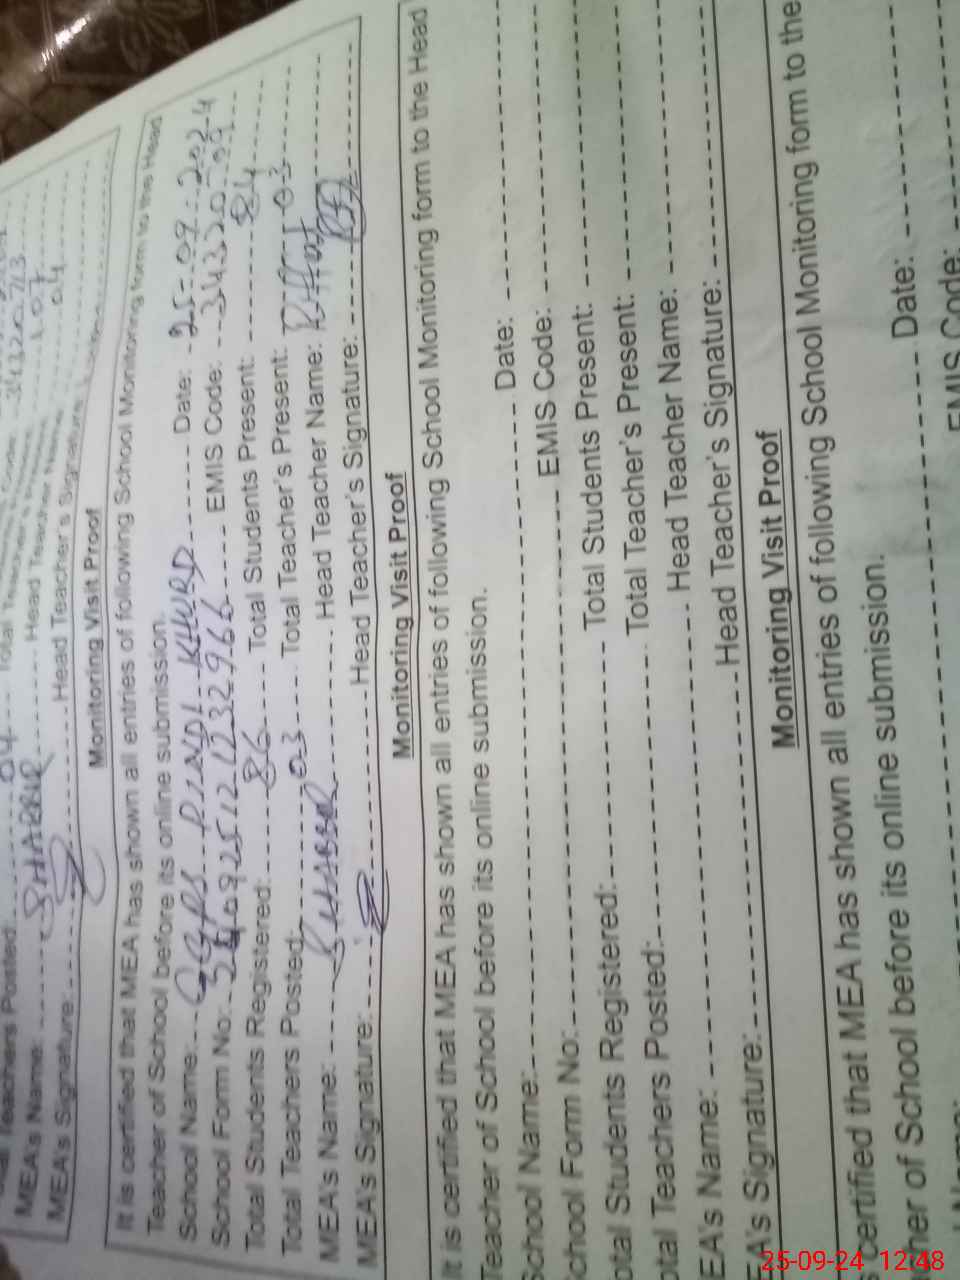 Teachers Posted: 04 Total Teacher's
MEA's Name: SHABBIR Head Teacher Name
MEA's Signature: Head Teacher's Signature:
Monitoring Visit Proof
It is certified that MEA has shown all entries of following School Monitoring form to the Head
Teacher of School before its online submission.
School Name: GGPS PINDI KHURD Date: 25-09-2024
School Form No: EMIS Code: 34320
Total Students Registered: 86 Total Students Present: 84
Total Teachers Posted: 03 Total Teacher's Present: 03
MEA's Name: SHABBIR Head Teacher Name: Riffat
MEA's Signature: Head Teacher's Signature:
Monitoring Visit Proof
It is certified that MEA has shown all entries of following School Monitoring form to the Head
Teacher of School before its online submission.
School Name: Date:
chool Form No: EMIS Code:
otal Students Registered: Total Students Present:
otal Teachers Posted: Total Teacher's Present:
EA's Name: Head Teacher Name:
EA's Signature: Head Teacher's Signature:
Monitoring Visit Proof
certified that MEA has shown all entries of following School Monitoring form to the
cher of School before its online submission.
Date:
EMIS Code:
25-09-24 12:48